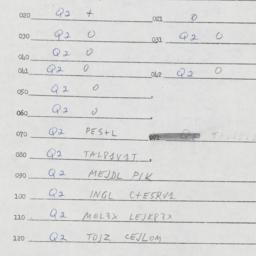 020 Q2 + 021 0
030 Q2 0 031 Q2 0
040 Q2 0
041 Q2 0 042 Q2 0
050 Q2 0
060 Q2 0
070 Q2 PES+L
080 Q2 TALPAVAT
090 Q2 MEJDL PIK
100 Q2 INGL C+ESRVA
110 Q2
120 Q2 TOJZ CEJLOM